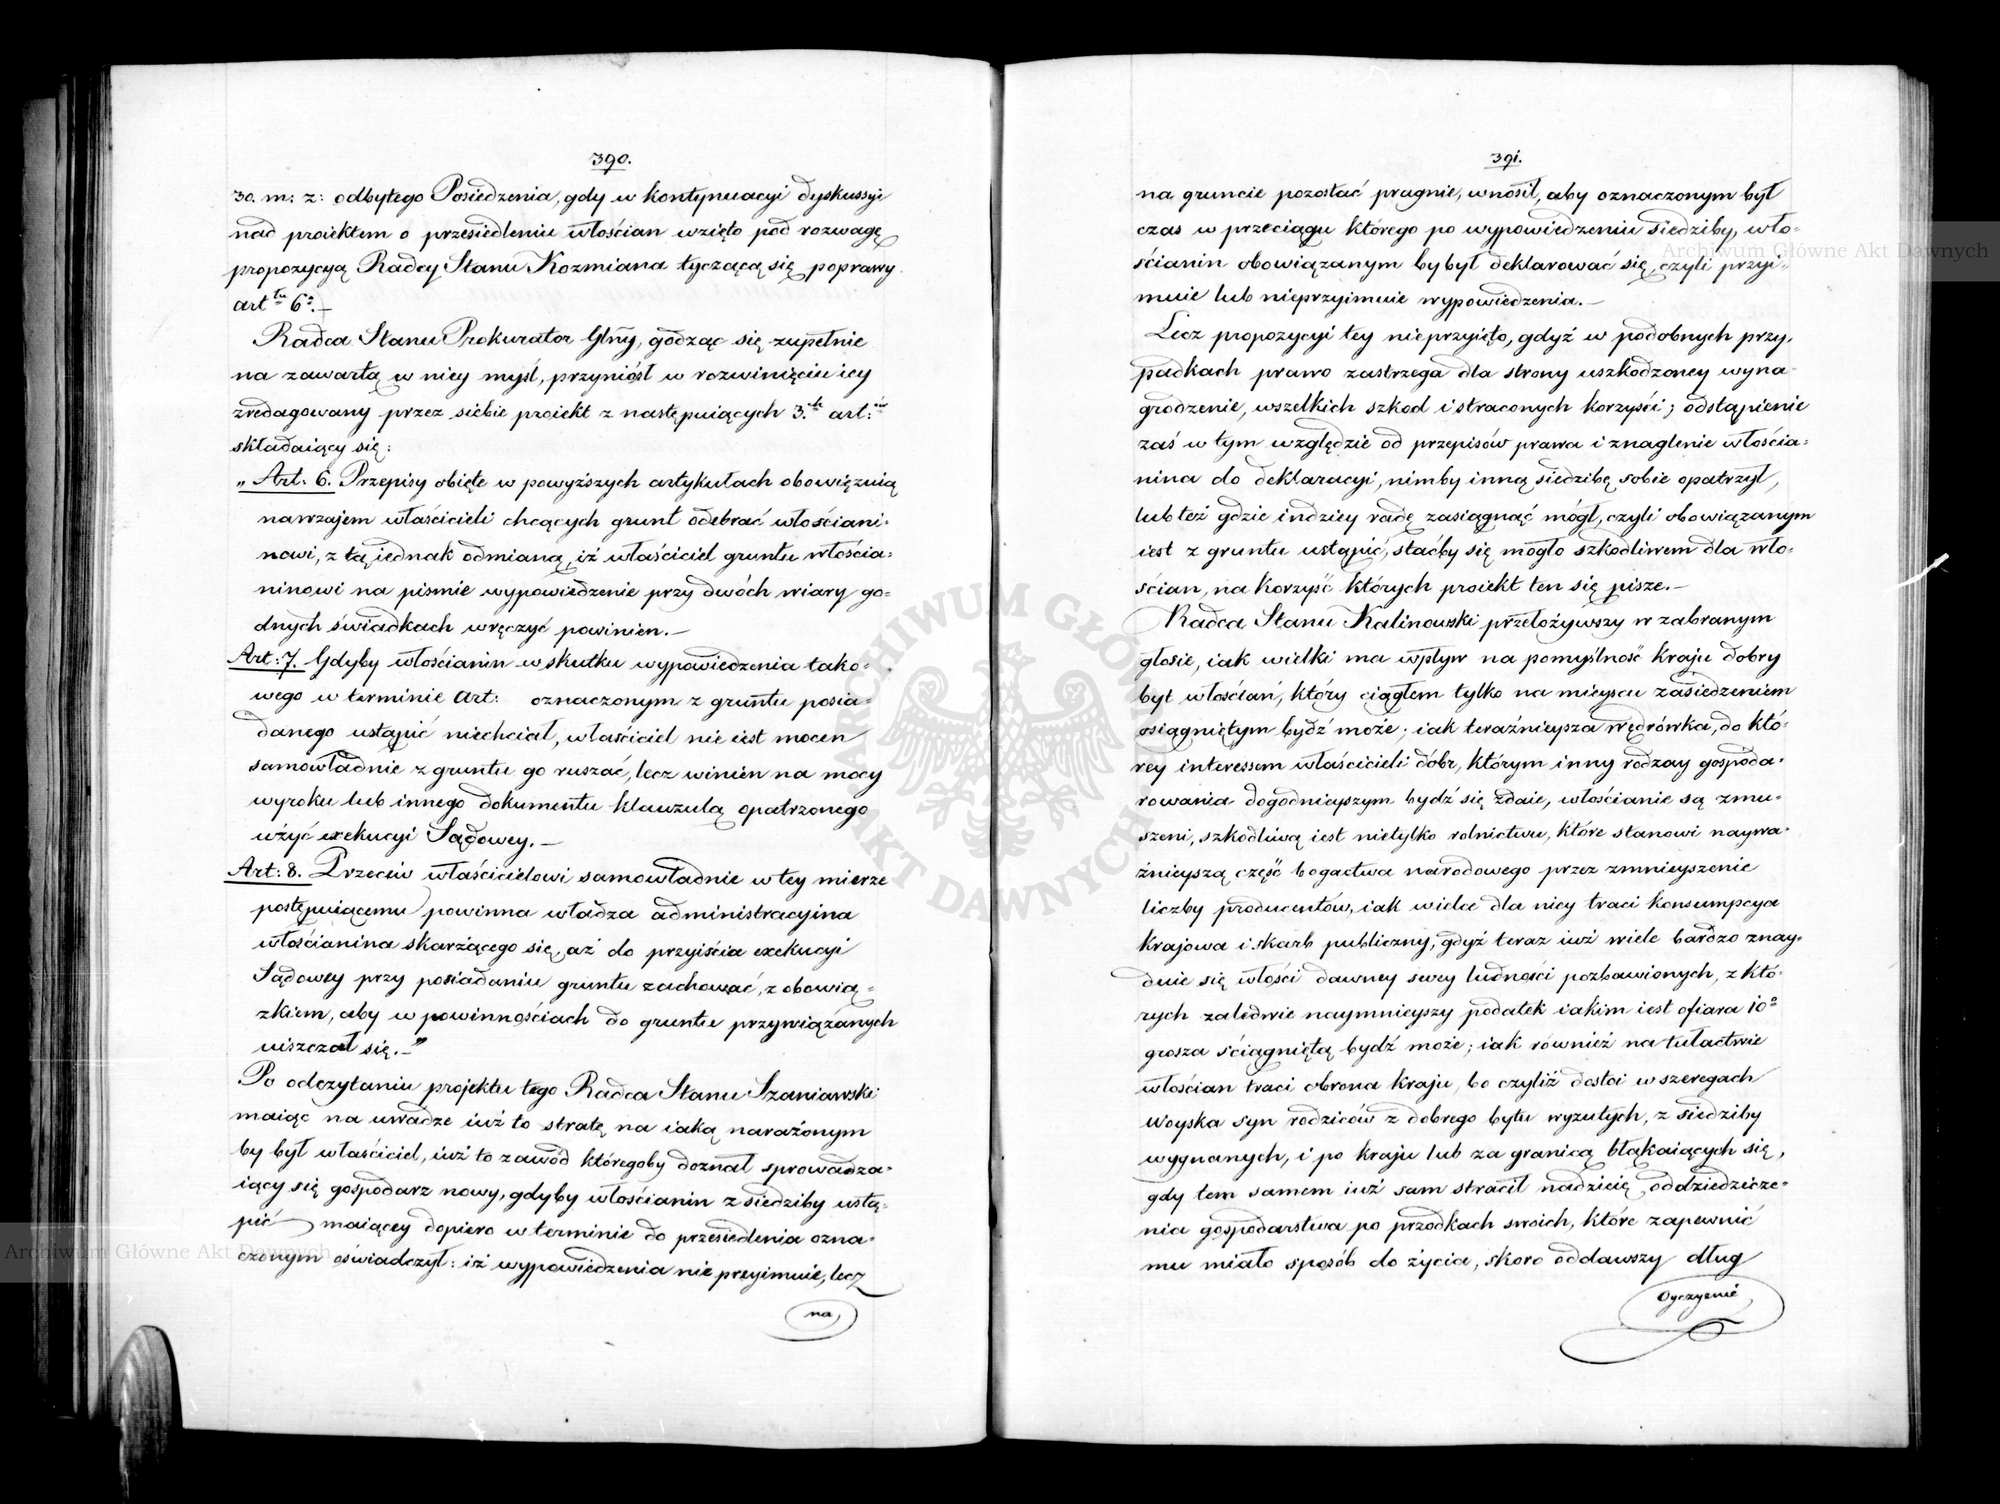 390.
30. m: z: odbytego Posiedzenia, gdy w kontynuacyi dyskussyi
nad proiektem o przesiedleniu włościan wzięto pod rozwagę
propozycyą Radcy Stanu Kozmiana tyczącą się poprawy
art tu 6º.—
Radca Stanu Prokurator Glny, godząc się zupełnie
na zawartą w niey myśl, przyniósł w rozwinięciu iey
zredagowany przez siebie proiekt z następuiących 3.ch art:ów
składaiący się:
„Art: 6. Przepisy obięte w powyższych artykułach obowięzuią
nawzajem właścicieli chcących grunt odebrać włościani-
nowi, z tą iednak odmianą, iż właściciel gruntu włościa-
ninowi na piśmie wypowiedzenie przy dwóch wiary go-
dnych świadkach wręczyć powinien.—
Art: 7. Gdyby włościanin w skutku wypowiedzenia tako-
wego w terminie art: oznaczonym z gruntu posia-
danego ustąpić niechciał, właściciel nie iest mocen
samowładnie z gruntu go ruszać, lecz winien na mocy
wyroku lub innego dokumentu klauzulą opatrzonego
użyć exekucyi Sądowey.—
Art: 8. Przeciw właścicielowi samowładnie w tey mierze
postępuiącemu powinna władza administracyina
włościanina skarżącego się, aż do przyiścia exekucyi
Sądowey przy posiadaniu gruntu zachować, z obowią-
zkiem, aby w powinnościach do gruntu przywiązanych
uiszczał się.—"
Po odczytaniu projektu tego Radca Stanu Szaniawski
maiąc na uwadze iuż to stratę na iaką narażonym
by był właściciel, iuż to zawód któregoby doznał sprowadza-
iący się gospodarz nowy, gdyby włościanin z siedziby ustą-
pić maiącey dopiero w terminie do przesiedlenia ozna-
czonym oświadczył: iż wypowiedzenia nie przyimuie, lecz
na
391.
na gruncie pozostać pragnie, wnosił, aby oznaczonym był
czas w przeciągu którego po wypowiedzeniu siedziby, wło-
ścianin obowiązanym by był deklarować się, czyli przyi-
muie lub nieprzyimuie wypowiedzenia.—
Lecz propozycyi tey nieprzyięto, gdyż w podobnych przy-
padkach prawo zastrzega dla strony uszkodzoney wyna-
grodzenie, wszelkich szkod i straconych korzyści; odstąpienie
zaś w tym względzie od przepisów prawa i znaglenie włościa-
nina do deklaracyi, nimby inną siedzibę sobie opatrzył,
lub też gdzie indziey radę zasiągnąć mógł, czyli obowiązanym
iest z gruntu ustąpić, staćby się mogło szkodliwem dla wło-
ścian, na korzyść których proiekt ten się pisze.—
Radca Stanu Kalinowski przełożywszy w zabranym
głosie, iak wielki ma wpływ na pomyślność kraju dobry
byt włościan, który ciągłem tylko na mieyscu zasiedzeniem
osiągniętym bydź może; iak teraźnieysza wędrówka, do któ-
rey interessem właścicieli dóbr, którym inny rodzay gospoda-
rowania dogodnieyszym bydź się zdaie, włościanie są zmu-
szeni, szkodliwą iest nietylko rolnictwu, które stanowi naywa-
żnieyszą część bogactwa narodowego przez zmnieyszenie
liczby producentów, iak wiele dla niey traci konsumpcya
krajowa i skarb publiczny, gdyż teraz iuż wiele bardzo znay-
duie się włości dawney swey ludności pozbawionych, z któ-
rych zaledwie naymnieyszy podatek iakim iest ofiara 10º
grosza ściągniętą bydź może; iak również na tułactwie
włościan traci obrona kraju, bo czyliż dostoi w szeregach
woyska syn rodziców z dobrego bytu wyzutych, z siedziby
wygnanych, i po kraju lub za granicą błąkaiących się,
gdy tem samem iuż sam stracił nadzieię oddziedzicze-
nia gospodarstwa po przodkach swoich, które zapewnić
mu miało sposób do życia, skoro oddawszy dług
Oyczyznie
Archiwum Główne Akt Dawnych
Archiwum Główne Akt Dawnych
ARCHIWUM GŁÓWNE AKT DAWNYCH